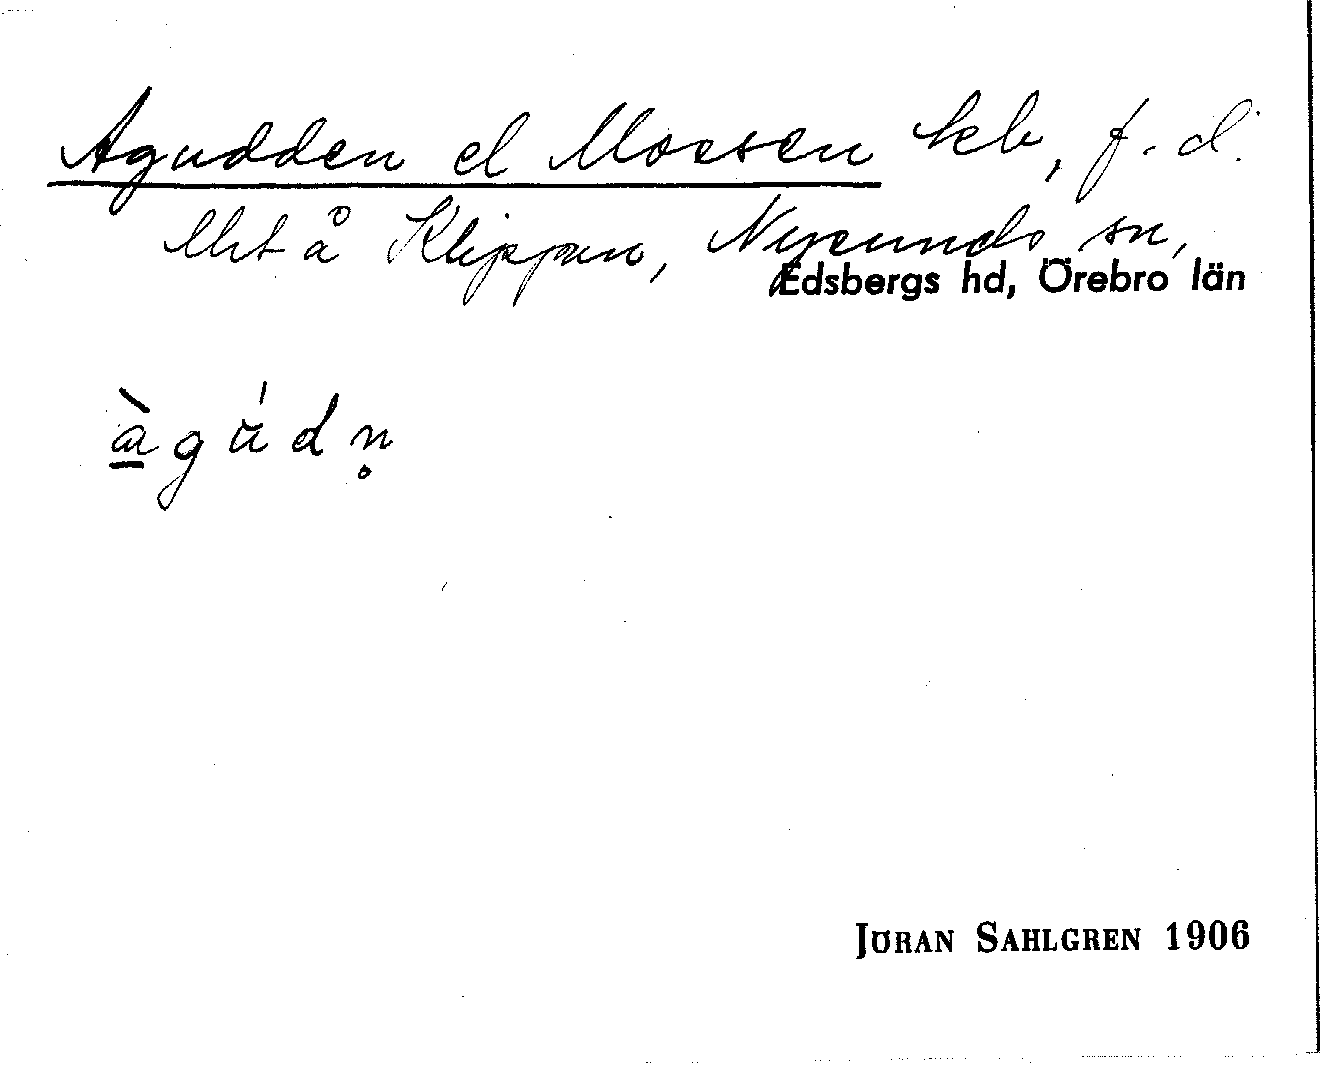 Agudden el Mossen ssk, f.d.
lht å Klippen, Nysunds sn,
Edsbergs hd, Örebro län
àgúdn̥
JÖRAN SAHLGREN 1906